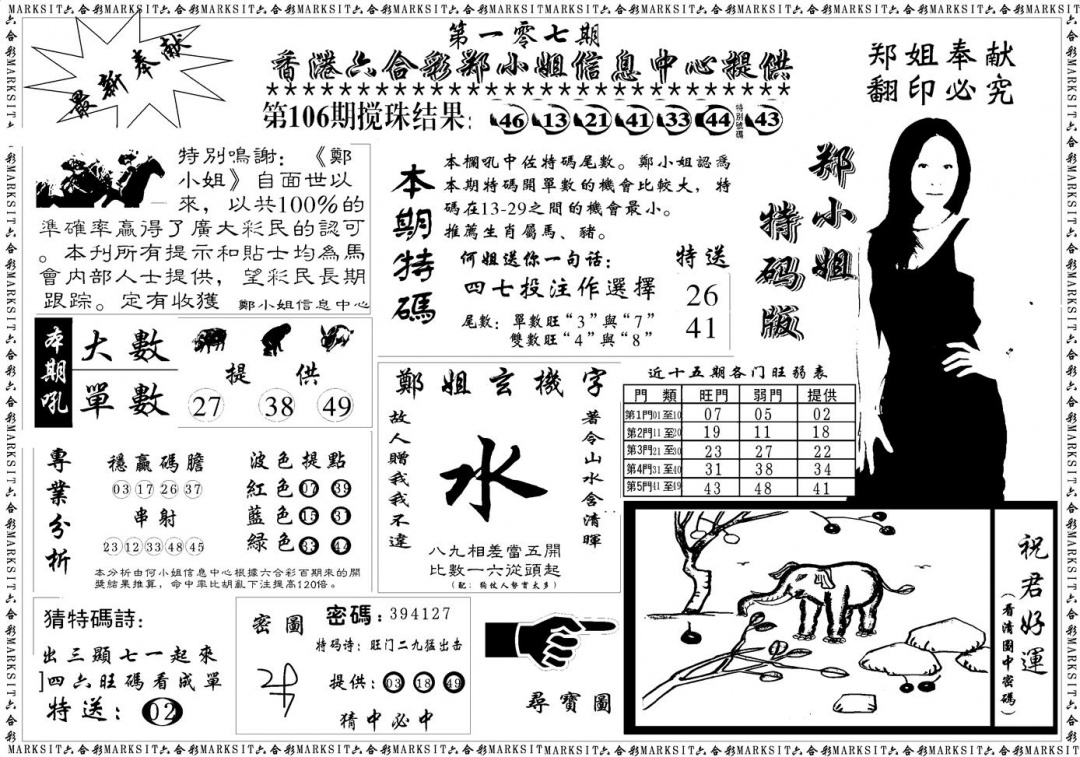 MARKSIT六合彩MARKSIT六合彩MARKSIT六合彩MARKSIT六合彩MARKSIT六合彩MARKSIT六合彩MARKSIT六合彩MARKSIT六合彩MARKSIT六合彩
最新奉献
第一零七期
香港六合彩郑小姐信息中心提供
★★★★★★★★★★★★★★★★★★★★★★★★★★★★★★
第106期搅珠结果: 46 13 21 41 33 44 特別號碼 43
郑姐奉献
翻印必究
特別鳴謝：《鄭
小姐》自面世以
來，以共100%的
準確率贏得了廣大彩民的認可
。本刊所有提示和貼士均為馬
會內部人士提供，望彩民長期
跟踪。定有收獲 鄭小姐信息中心
本期特碼
本欄吼中佐特碼尾數。鄭小姐認爲
本期特碼開單數的機會比較大，特
碼在13-29之間的機會最小。
推薦生肖屬馬、豬。
何姐送你一句话：
四七投注作選擇
尾數：單數旺“3”與“7”
雙數旺“4”與“8”
特送
26
41
郑小姐
特码版
本期吼
大數
單數
提供
27 38 49
專業分析
穩贏碼膽
03 17 26 37
串射
23 12 33 48 45
波色提點
紅色 07 39
藍色 15 31
緑色 33 44
本分析由何小姐信息中心根據六合彩百期來的開
獎結果推算，命中率比胡亂下注提高120倍。
鄭姐玄機字
故人贈我我不違
水
著令山水含清暉
八九相差當五開
比數一六從頭起
近十五期各门旺弱表
門類 旺門 弱門 提供
第1門01至10 07 05 02
第2門11至20 19 11 18
第3門21至30 23 27 22
第4門31至40 31 38 34
第5門41至49 43 48 41
猜特碼詩:
出三顯七一起來
]四六旺碼看成單
特送：02
密圖
密碼:394127
特码诗：旺门二九猛出击
提供：03 18 49
猜中必中
尋寶圖
祝君好運
（看清圖中密碼）
MARKSIT六合彩MARKSIT六合彩MARKSIT六合彩MARKSIT六合彩MARKSIT六合彩MARKSIT六合彩MARKSIT六合彩MARKSIT六合彩MARKSIT六合彩